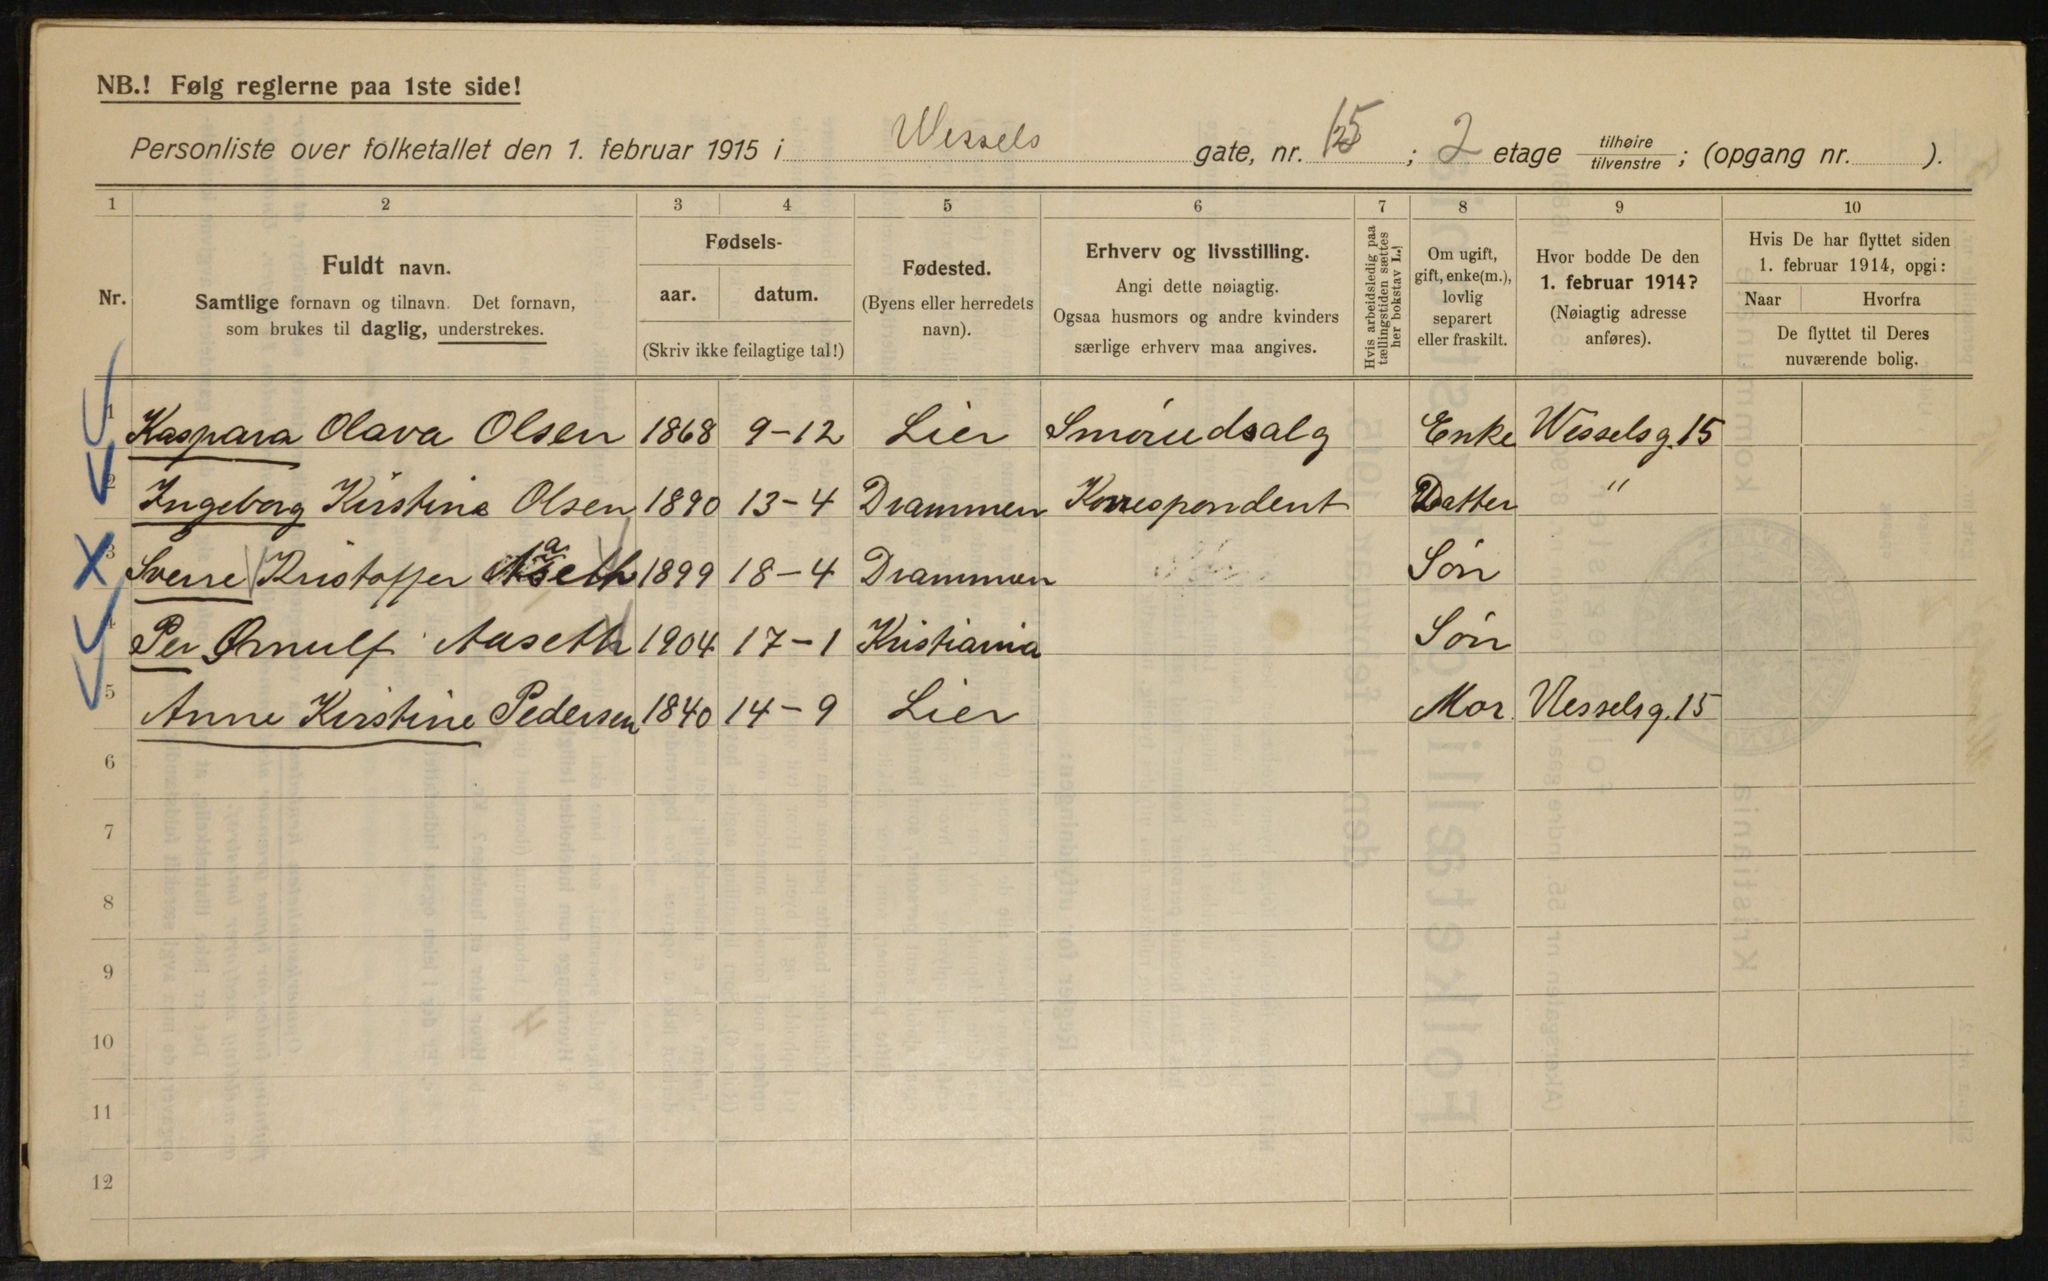 NB.! Følg reglerne paa 1ste side!
Personliste over folketallet den 1. februar 1915 i Wessels gate, nr. 15; 2 etage tilhøire/tilvenstre; (opgang nr. ).
1 2 3 4 5 6 7 8 9 10
Nr.
Fuldt navn.
Samtlige fornavn og tilnavn. Det fornavn,
som brukes til daglig, understrekes.
Fødsels-
aar. datum.
(Skriv ikke feilagtige tal!)
Fødested.
(Byens eller herredets
navn).
Erhverv og livsstilling.
Angi dette nøiagtig.
Ogsaa husmors og andre kvinders
særlige erhverv maa angives.
Hvis arbeidsledig paa
tællingstiden sættes
her bokstav L.!
Om ugift,
gift, enke(m.),
lovlig
separert
eller fraskilt.
Hvor bodde De den
1. februar 1914?
(Nøiagtig adresse
anføres).
Hvis De har flyttet siden
1. februar 1914, opgi:
Naar Hvorfra
De flyttet til Deres
nuværende bolig.
1 Kaspara Olava Olsen 1868 9-12 Lier Smørudsalg Enke Wesselsg. 15
2 Ingeborg Kirstine Olsen 1890 13-4 Drammen Korrespondent Datter "
3 Sverre Kristoffer Aaseth 1899 18-4 Drammen Søn
4 Per Ørnulf Aaseth 1904 17-1 Kristiania Søn
5 Anne Kirstine Pedersen 1840 14-9 Lier Mor. Wesselsg. 15
6
7
8
9
10
11
12